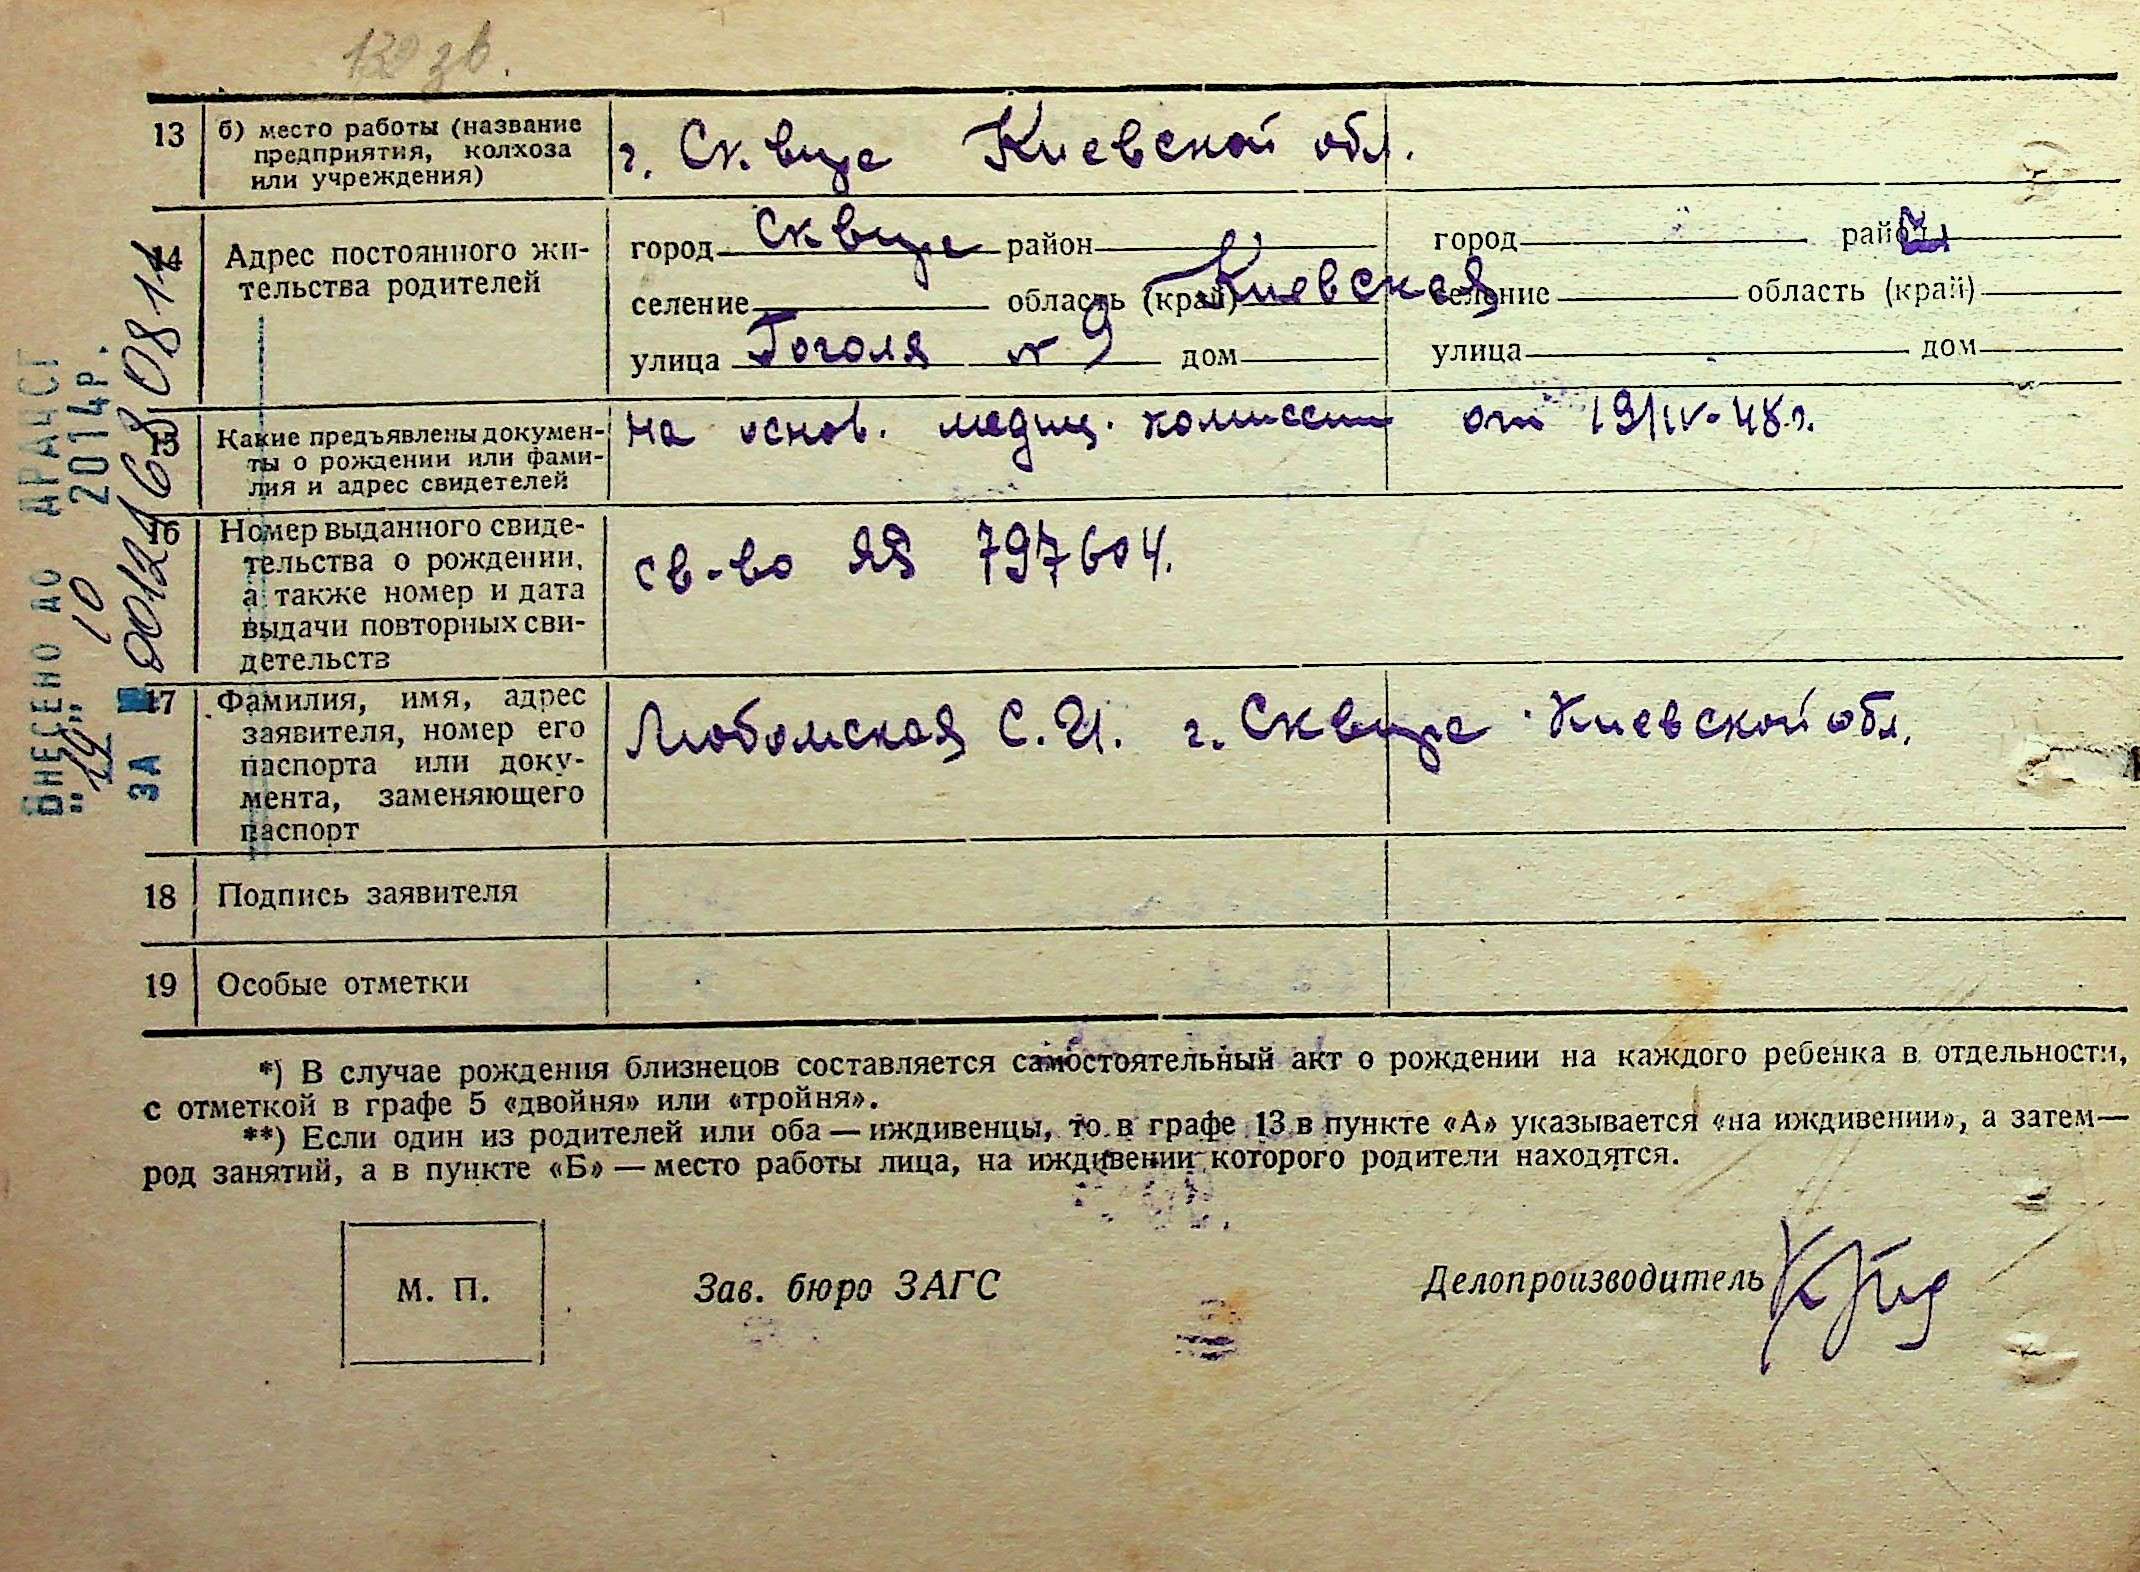 120 зв.
13
б) место работы (название
предприятия, колхоза
или учреждения)
г. Сквире Киевской обл.
14
Адрес постоянного жи-
тельства родителей
город Сквире район
селение область (край) Киевская
улица Гоголя № 9 дом
город район
селение область (край)
улица дом
15
Какие предъявлены докумен-
ты о рождении или фами-
лия и адрес свидетелей
на основ. медиц. комиссии от 19/IV-48 г.
16
Номер выданного свиде-
тельства о рождении,
а также номер и дата
выдачи повторных сви-
детельств
св-во ЯЯ 797604.
17
Фамилия, имя, адрес
заявителя, номер его
паспорта или доку-
мента, заменяющего
паспорт
Любомская С. И. г. Сквире Киевской обл.
18
Подпись заявителя
19
Особые отметки
*) В случае рождения близнецов составляется самостоятельный акт о рождении на каждого ребенка в отдельности,
с отметкой в графе 5 «двойня» или «тройня».
**) Если один из родителей или оба — иждивенцы, то в графе 13 в пункте «А» указывается «на иждивении», а затем—
род занятий, а в пункте «Б» — место работы лица, на иждивении которого родители находятся.
М. П.
Зав. бюро ЗАГС
Делопроизводитель
ВНЕСЕНО ДО ДРАЦСГ
"19" 10 2014р.
ЗА №